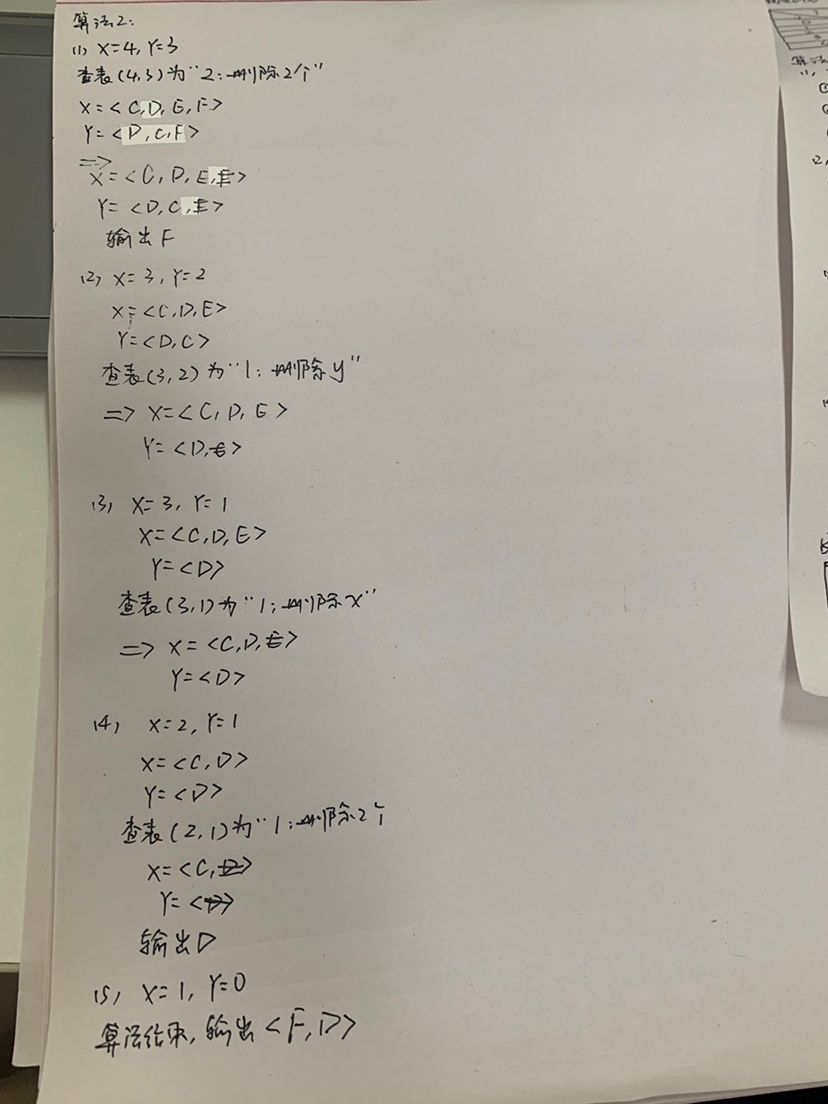 算法2:
(1) X=4, Y=3
查表(4,3)为"2:删除2个"
X=<C,D,E,F>
Y=<D,C,F>
=>
X=<C,D,E,F>
Y=<D,C,F>
输出F
(2) X=3, Y=2
X=<C,D,E>
Y=<D,C>
查表(3,2)为"1:删除y"
=> X=<C,D,E>
Y=<D,C>
(3) X=3, Y=1
X=<C,D,E>
Y=<D>
查表(3,1)为"1:删除x"
=> X=<C,D,E>
Y=<D>
(4) X=2, Y=1
X=<C,D>
Y=<D>
查表(2,1)为"1:删除2个
X=<C,D>
Y=<D>
输出D
(5) X=1, Y=0
算法结束,输出<F,D>